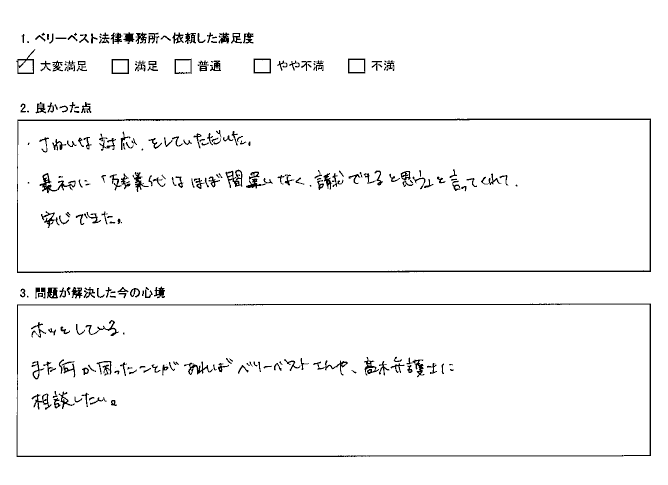 1. ベリーベスト法律事務所へ依頼した満足度
大変満足 満足 普通 やや不満 不満
2. 良かった点
・きれいな対応をしていただいた。
・最初に「残業代はほぼ間違いなく、請求できると思う」と言ってくれて、
安心できた。
3. 問題が解決した今の心境
ホッとしている。
また何か困ったことがあればベリーベストさんや、高木弁護士に
相談したい。